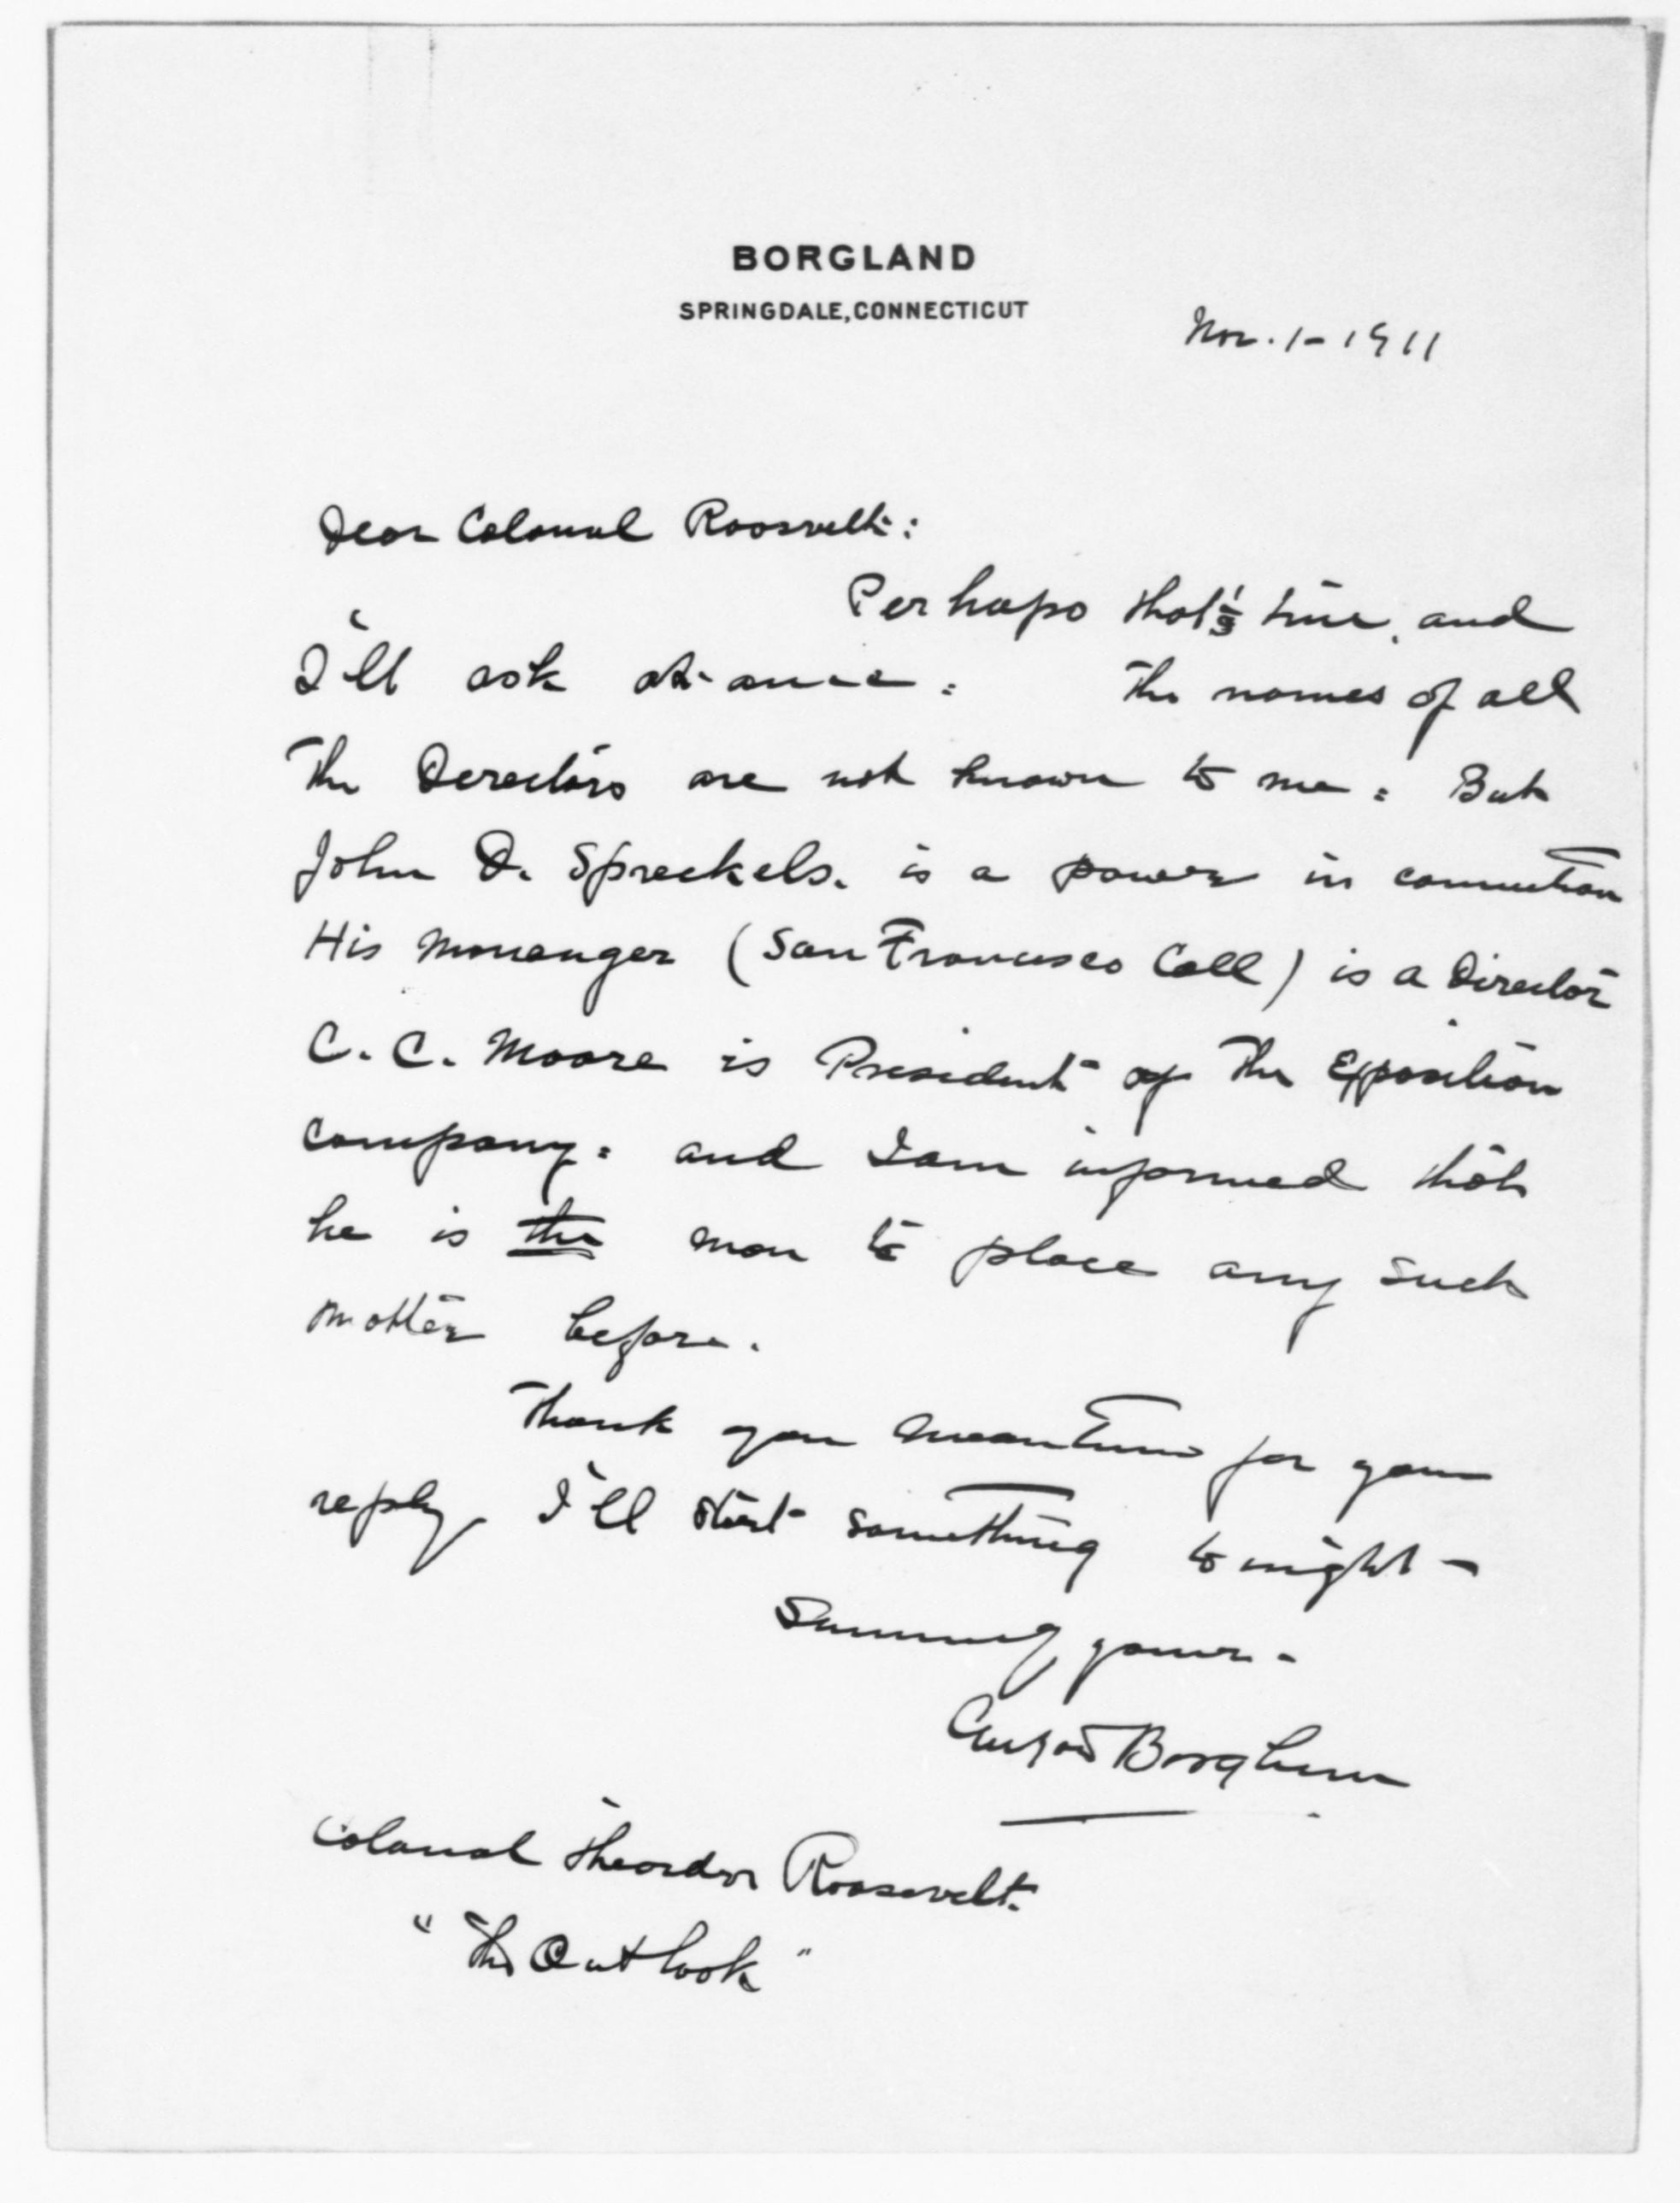 BORGLAND
SPRINGDALE, CONNECTICUT
Nov. 1 - 1911
Dear Colonel Roosevelt:
Perhaps that's true, and
I'll ask at once: The names of all
The Derectors are not known to me: But
John D. Spreckels. is a power in connection
His Manager (San Francisco Call) is a Director
C. C. Moore is President of The Exposition
company: and I am informed that
he is the man to place any such
matter before.
Thank you meantime for your
reply. I'll start something tonight -
Sincerely yours -
Gutzon Borglum
Colonel Theordor Roosevelt.
"The Outlook"